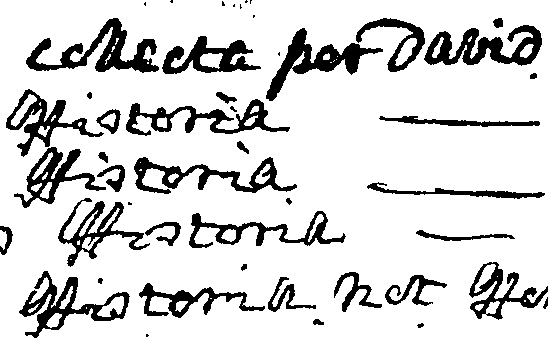 collecta per David
Historia
Historia
Historia
Historia. not